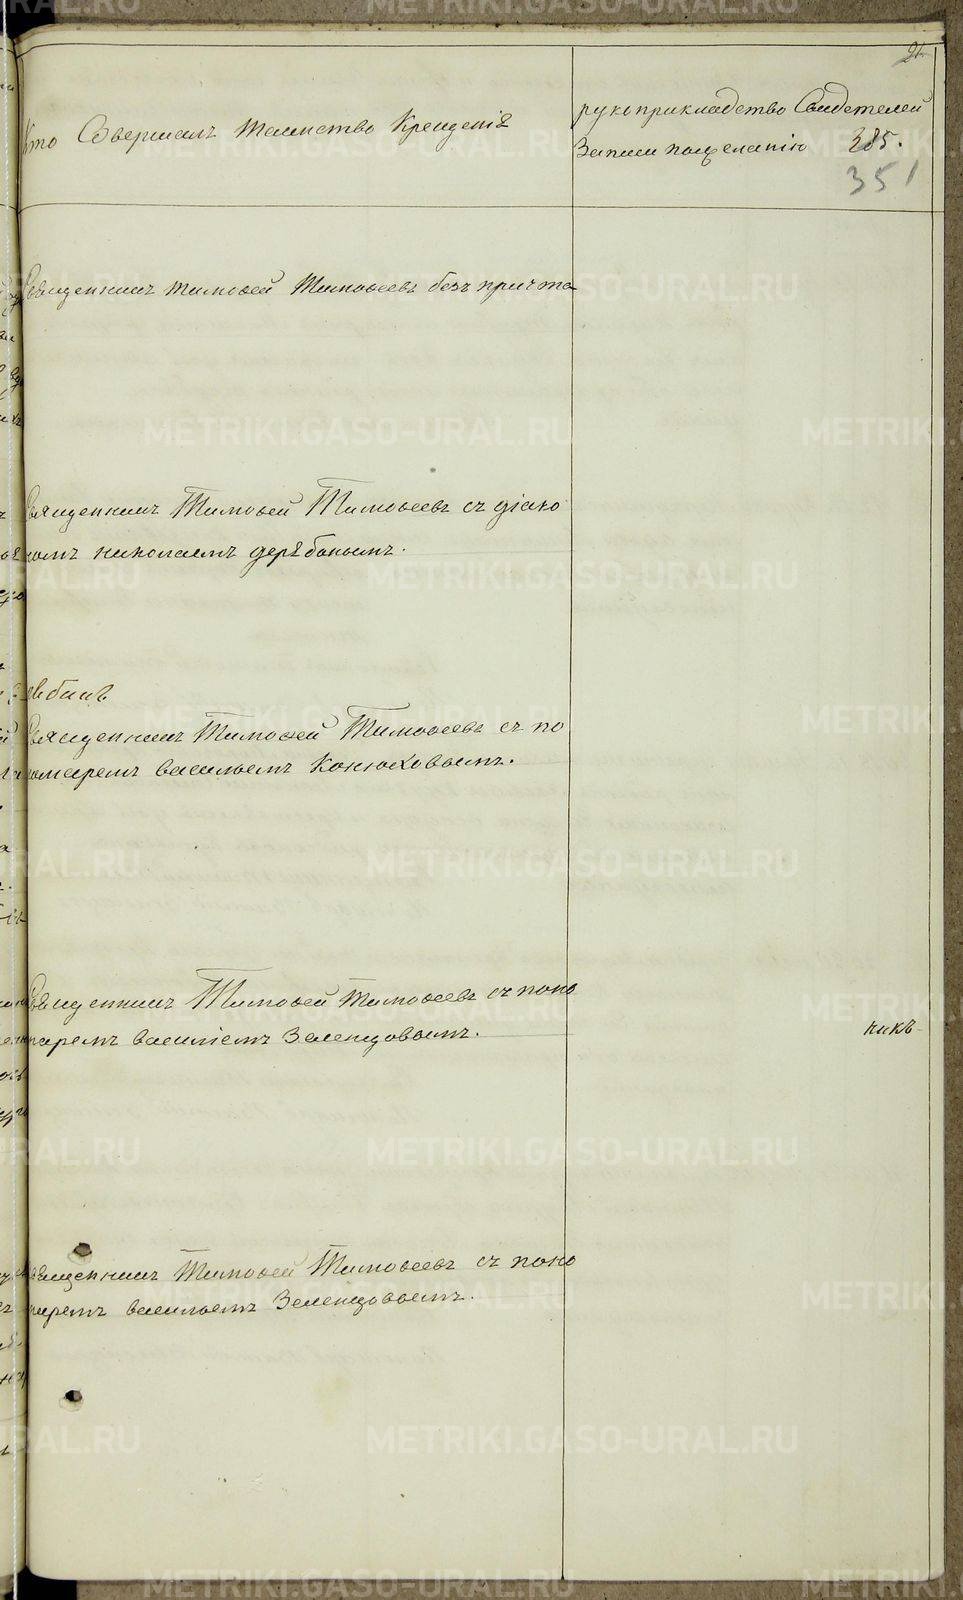 21
Кто Совершалъ таинство Крещенія
рукоприкладство Свидетелей
Записи пожеланію 385.
351
Священникъ тимофей Тимофеевъ безъ причта
Священникъ Тимофей Тимофеевъ съ діако
номъ николаемъ дерябинымъ.
Священникъ Тимофей Тимофеевъ съ по
номаремъ васильемъ Конюховымъ.
Священникъ Тимофей тимофеевъ съ поно
маремъ василіемъ Зеленцовымъ.
никъ
Священникъ Тимофей Тимофеевъ съ поно
маремъ васильемъ Зеленцовымъ.
METRIKI.GASO-URAL.RU